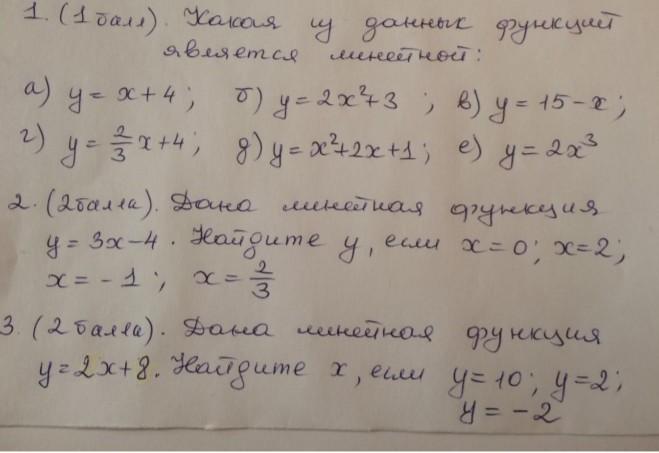 1. (1 балл). Какая из данных функций
является линейной:
а) y = x + 4; б) y = 2x²+3 ; в) y = 15 - x;
г) y = 2/3 x + 4; д) y = x²+2x+1; е) y = 2x³
2. (2 балла). Дана линейная функция
y = 3x - 4. Найдите y, если x = 0; x = 2;
x = - 1; x = 2/3
3. (2 балла). Дана линейная функция
y = 2x + 8. Найдите x, если y = 10; y = 2;
y = - 2